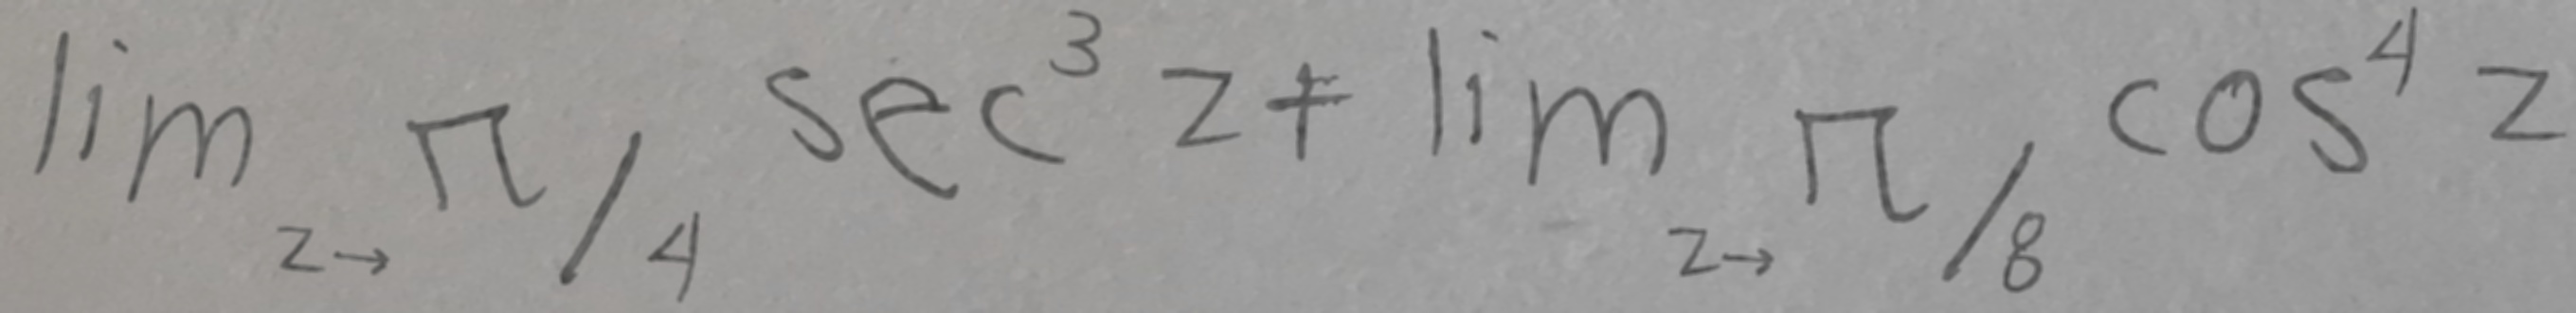 lim z→ π/4 sec³ z + lim z→ π/8 cos⁴ z